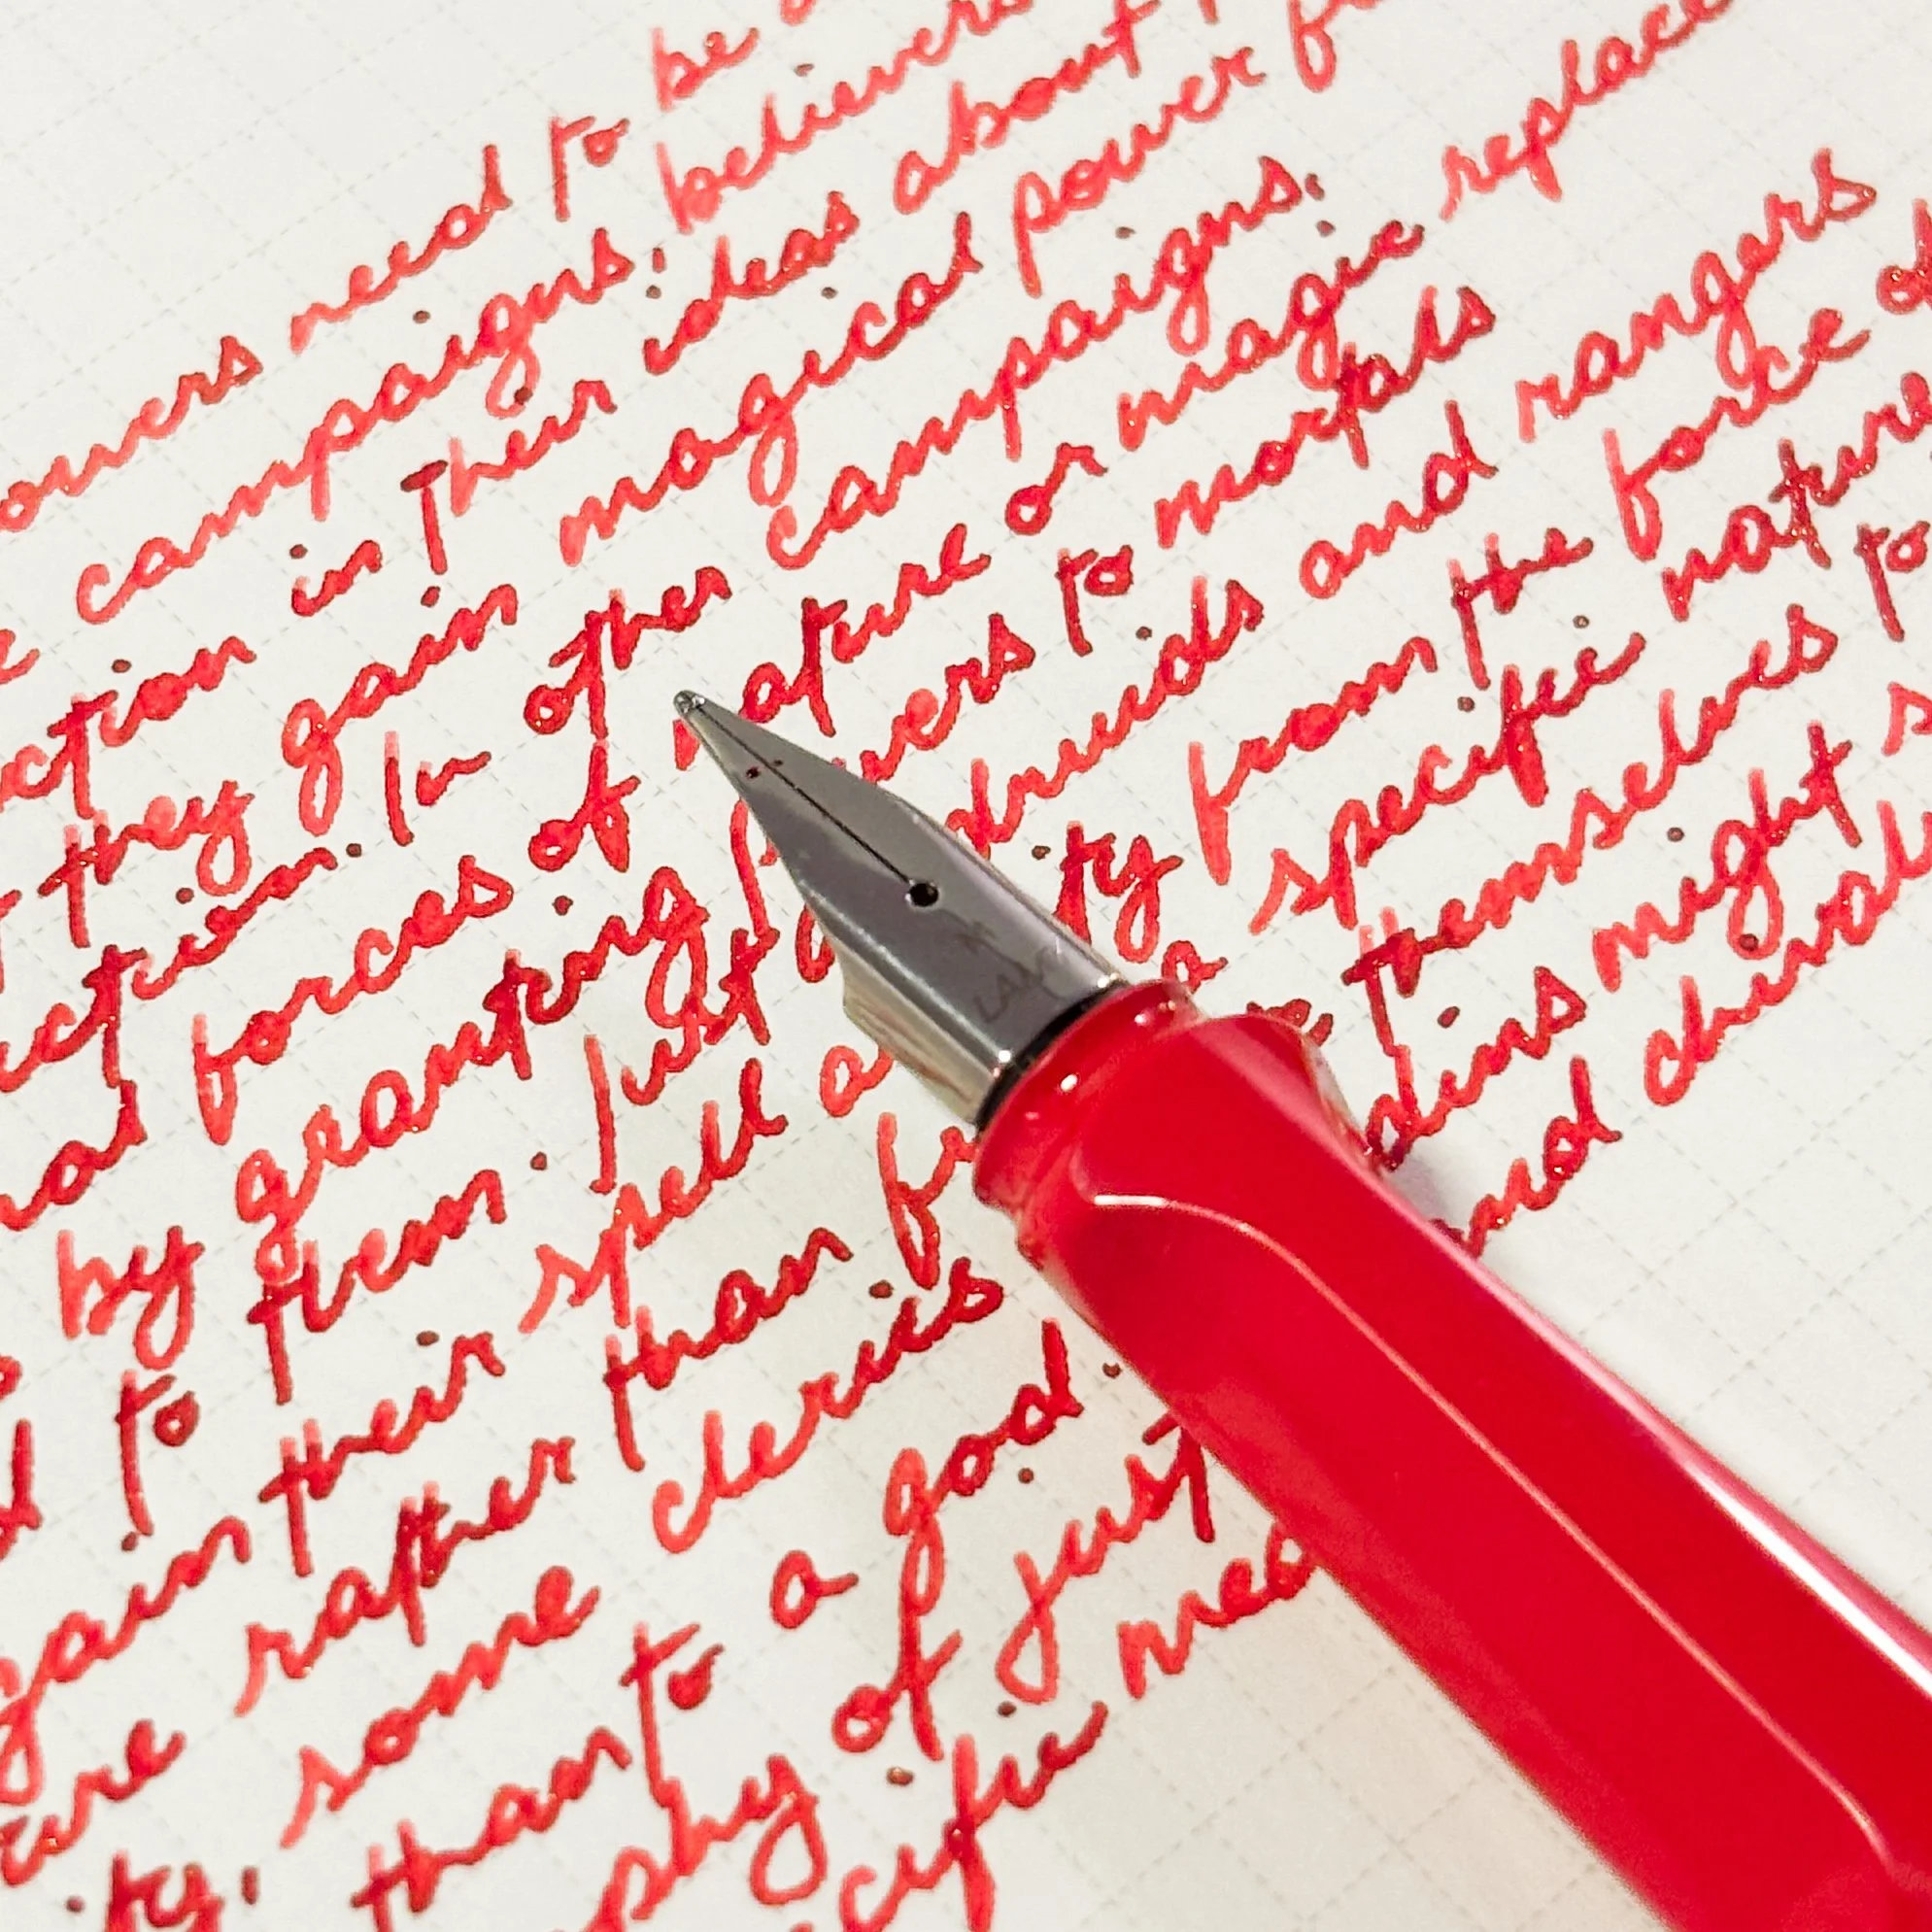 owers need to be
campaigns. believers
ction in Their ideas about
they gain magical power
ction. In other campaigns.
forces of nature or magic replace
by granting to mortals
to them. Just druids and rangers
gain their spell ty from the force of
ture rather than a specific nature
ty. some clerics themselves to
than to a god. dins might s
phy of just and chival
cific
LAMY